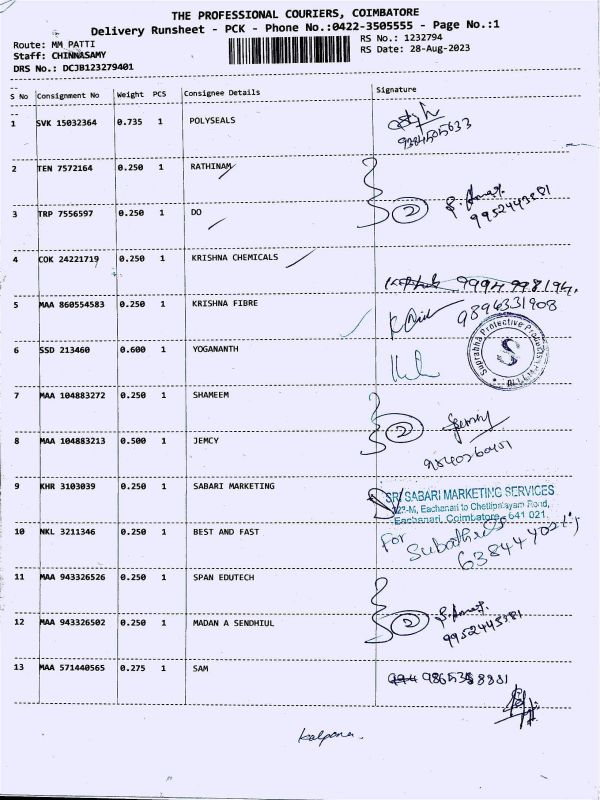 THE PROFESSIONAL COURIERS, COIMBATORE
Delivery Runsheet - PCK - Phone No.:0422-3505555 - Page No.:1
Route: MM_PATTI
Staff: CHINNASAMY
DRS No.: DCJB123279401
RS No.: 1232794
RS Date: 28-Aug-2023
S No Consignment No Weight PCS Consignee Details Signature
1 SVK 15032364 0.735 1 POLYSEALS
2 TEN 7572164 0.250 1 RATHINAM
3 TRP 7556597 0.250 1 DO
2
4 COK 24221719 0.250 1 KRISHNA CHEMICALS
5 MAA 860554583 0.250 1 KRISHNA FIBRE
9894331908
Suprabha Protective Products
S
6 SSD 213460 0.600 1 YOGANANTH
7 MAA 104883272 0.250 1 SHAMEEM
2
8 MAA 104883213 0.500 1 JEMCY
9 KHR 3103039 0.250 1 SABARI MARKETING
SRI SABARI MARKETING SERVICES
Eachanari to Chettipalayam Road,
Eachanari, Coimbatore - 641 021.
10 NKL 3211346 0.250 1 BEST AND FAST
For
11 MAA 943326526 0.250 1 SPAN EDUTECH
12 MAA 943326502 0.250 1 MADAN A SENDHIUL
2
13 MAA 571440565 0.275 1 SAM
Kalpana.